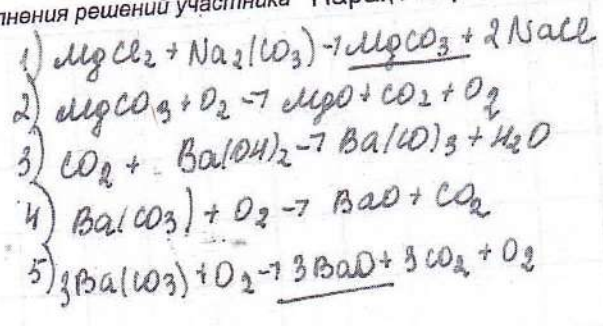 лнения решений участника
1) MgCl2 + Na2(CO3) → MgCO3 + 2 NaCl
2) MgCO3 + O2 → MgO + CO2 + O2
3) CO2 + Ba(OH)2 → Ba(CO)3 + H2O
4) Ba(CO3) + O2 → BaO + CO2
5) 3Ba(CO3) + O2 → 3BaO + 3CO2 + O2